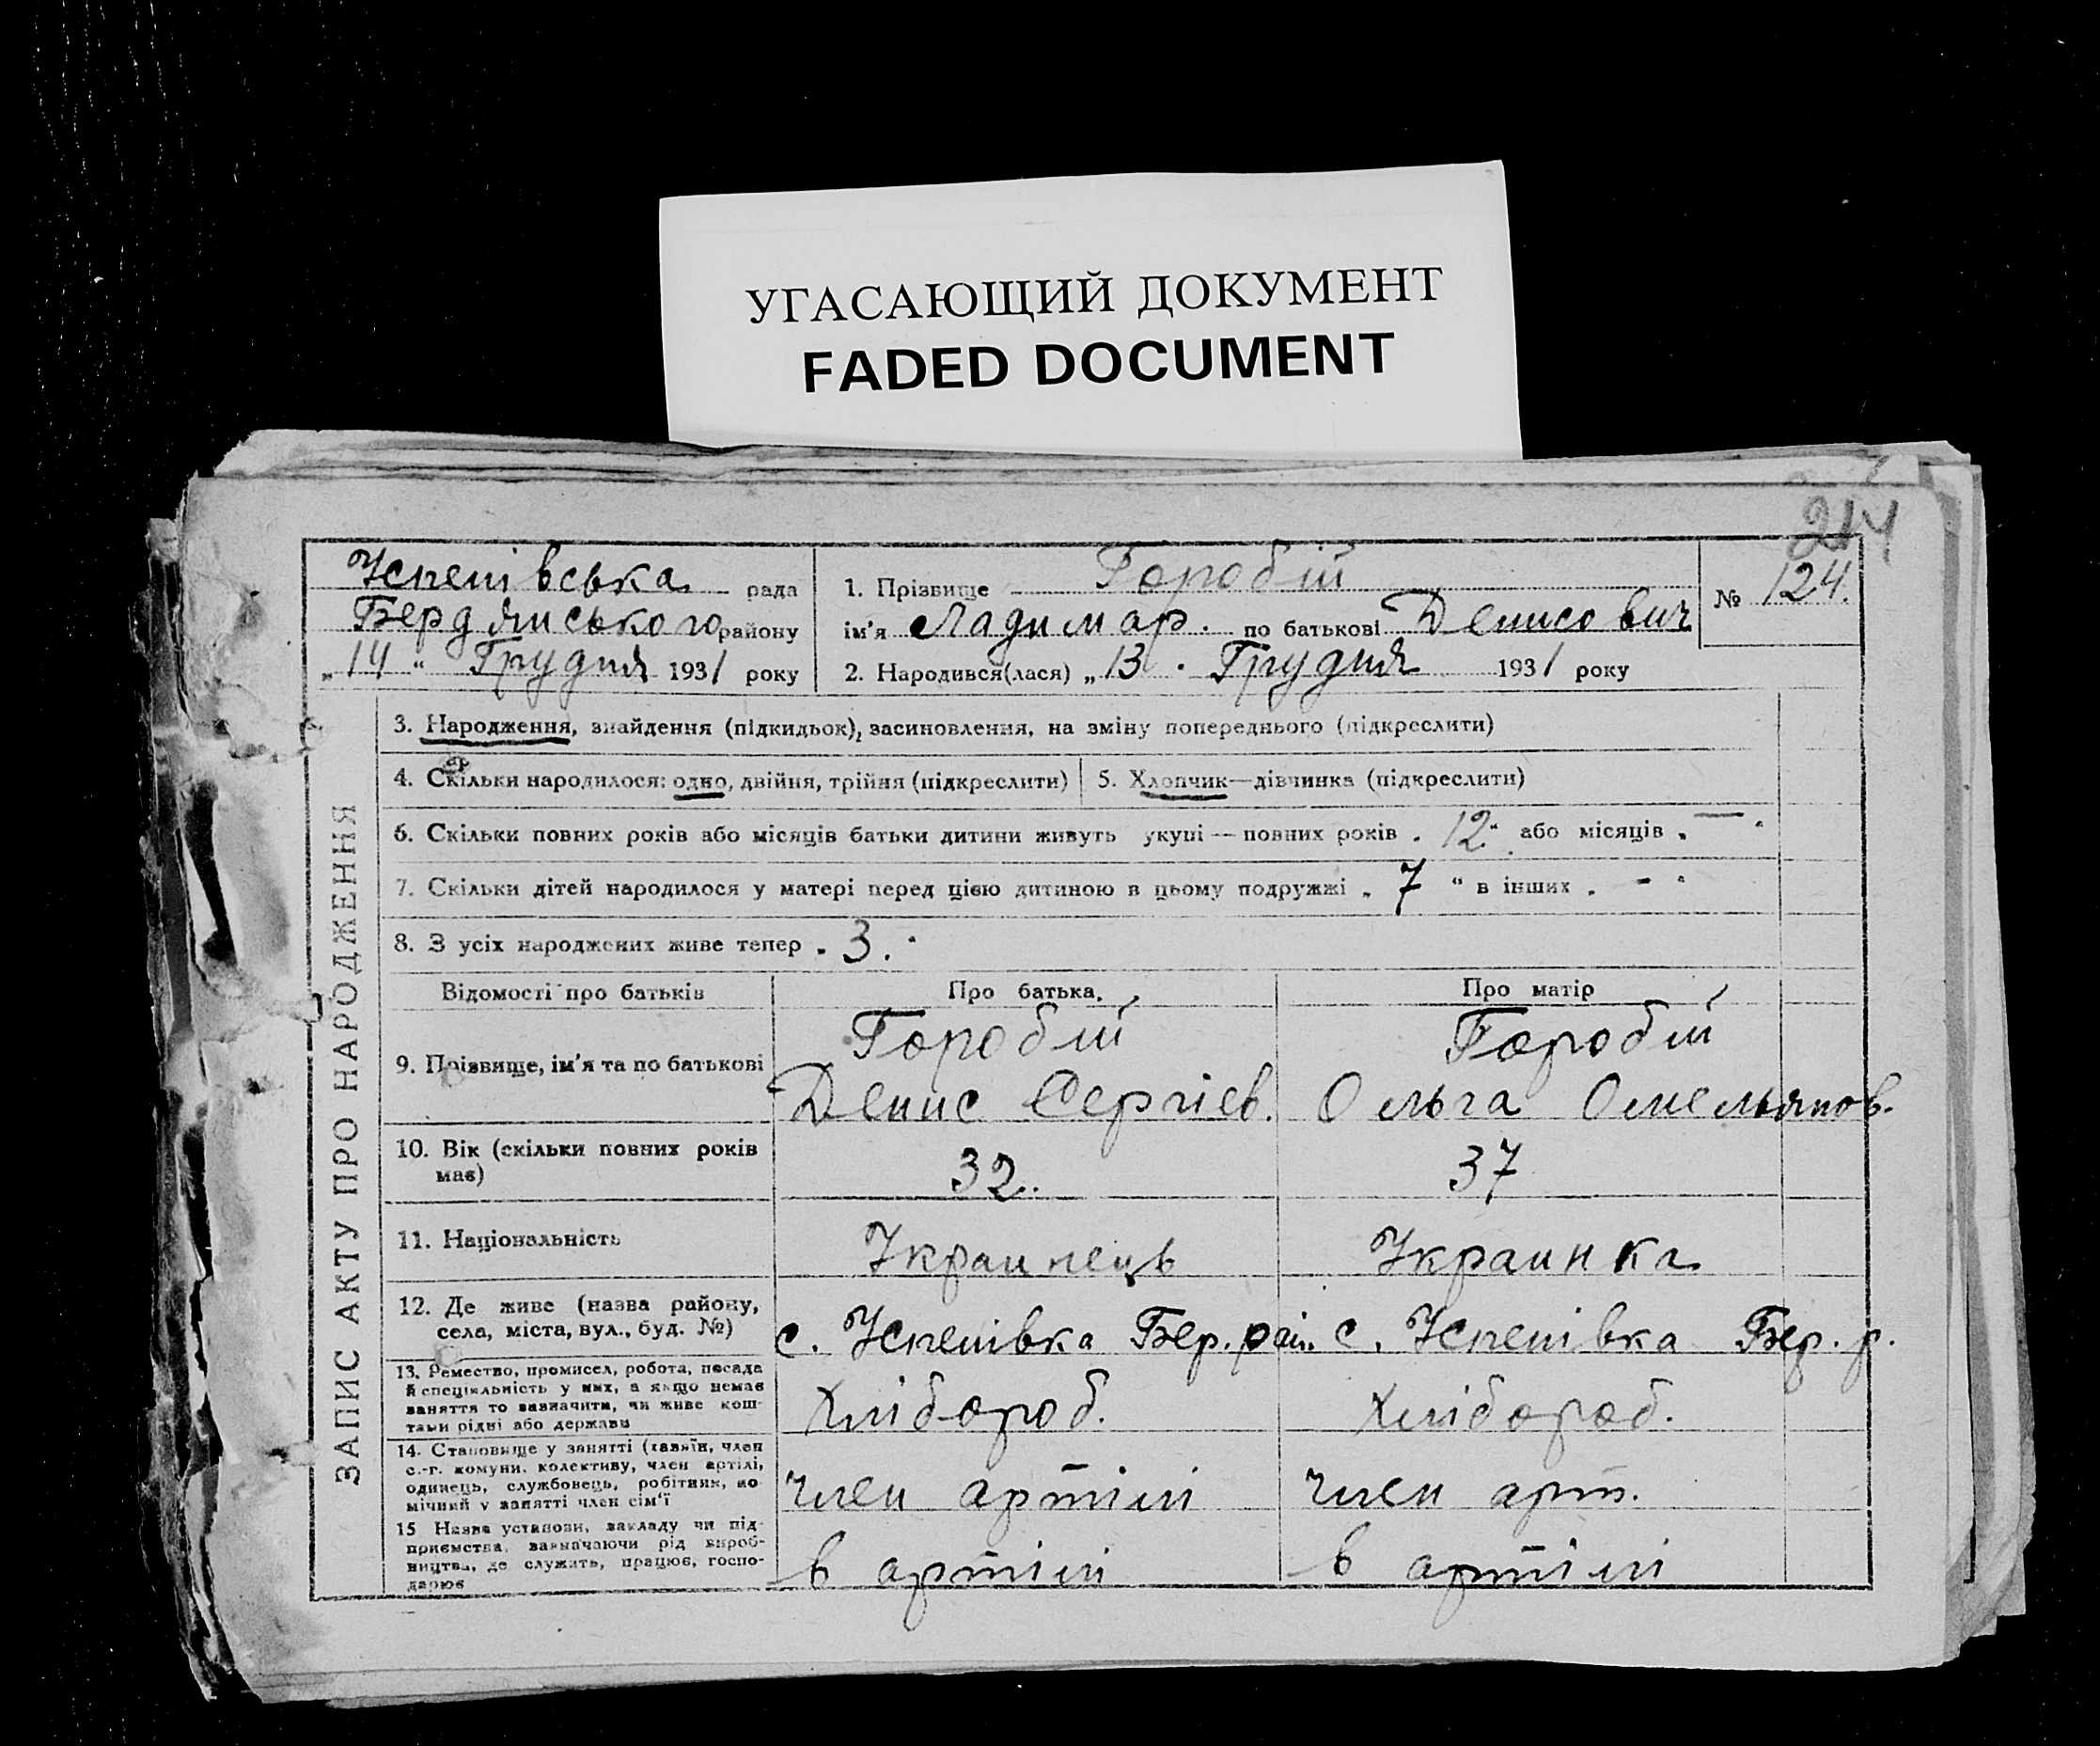 УГАСАЮЩИЙ ДОКУМЕНТ
FADED DOCUMENT
214
Успенівська рада
Бердянського району
„14“ Грудня 1931 року
1. Прізвище Горобій
ім'я Ладимар. по батькові Денисович
2. Народився(лася) „13. Грудня 1931 року
№ 124.
ЗАПИС АКТУ ПРО НАРОДЖЕННЯ
3. Народження, знайдення (підкидьок), засиновлення, на зміну попереднього (підкреслити)
4. Скільки народилося: одно, двійня, трійня (підкреслити)
5. Хлопчик—дівчинка (підкреслити)
6. Скільки повних років або місяців батьки дитини живуть укупі — повних років „12“ або місяців „—“
7. Скільки дітей народилося у матері перед цією дитиною в цьому подружжі „7“ в інших „-“
8. З усіх народжених живе тепер „3.“
Відомості про батьків
Про батька
Про матір
9. Прізвище, ім'я та по батькові
Горобій
Денис Сергіев.
Горобій
Ольга Омельянов.
10. Вік (скільки повних років
має)
32.
37
11. Національність
Украинець
Украинка
12. Де живе (назва району,
села, міста, вул., буд. №)
с. Успенівка Бер. рай.
с. Успенівка Бер. р.
13. Ремество, промисел, робота, посада
й спеціяльність у них, а якщо немає
заняття то зазначити, чи живе кош-
тами рідні або держави
Хлібороб.
Хлібороб.
14. Становище у занятті (хазяїн, член
с.-г. комуни, колективу, член артілі,
одинець, службовець, робітник, по
мічний у занятті член сім'ї
член артілі
член арт.
15 Назва установи, закладу чи під-
приємства, зазначаючи рід вироб-
ництва, де служить, працює, госпо-
дарює
в артілі
в артілі